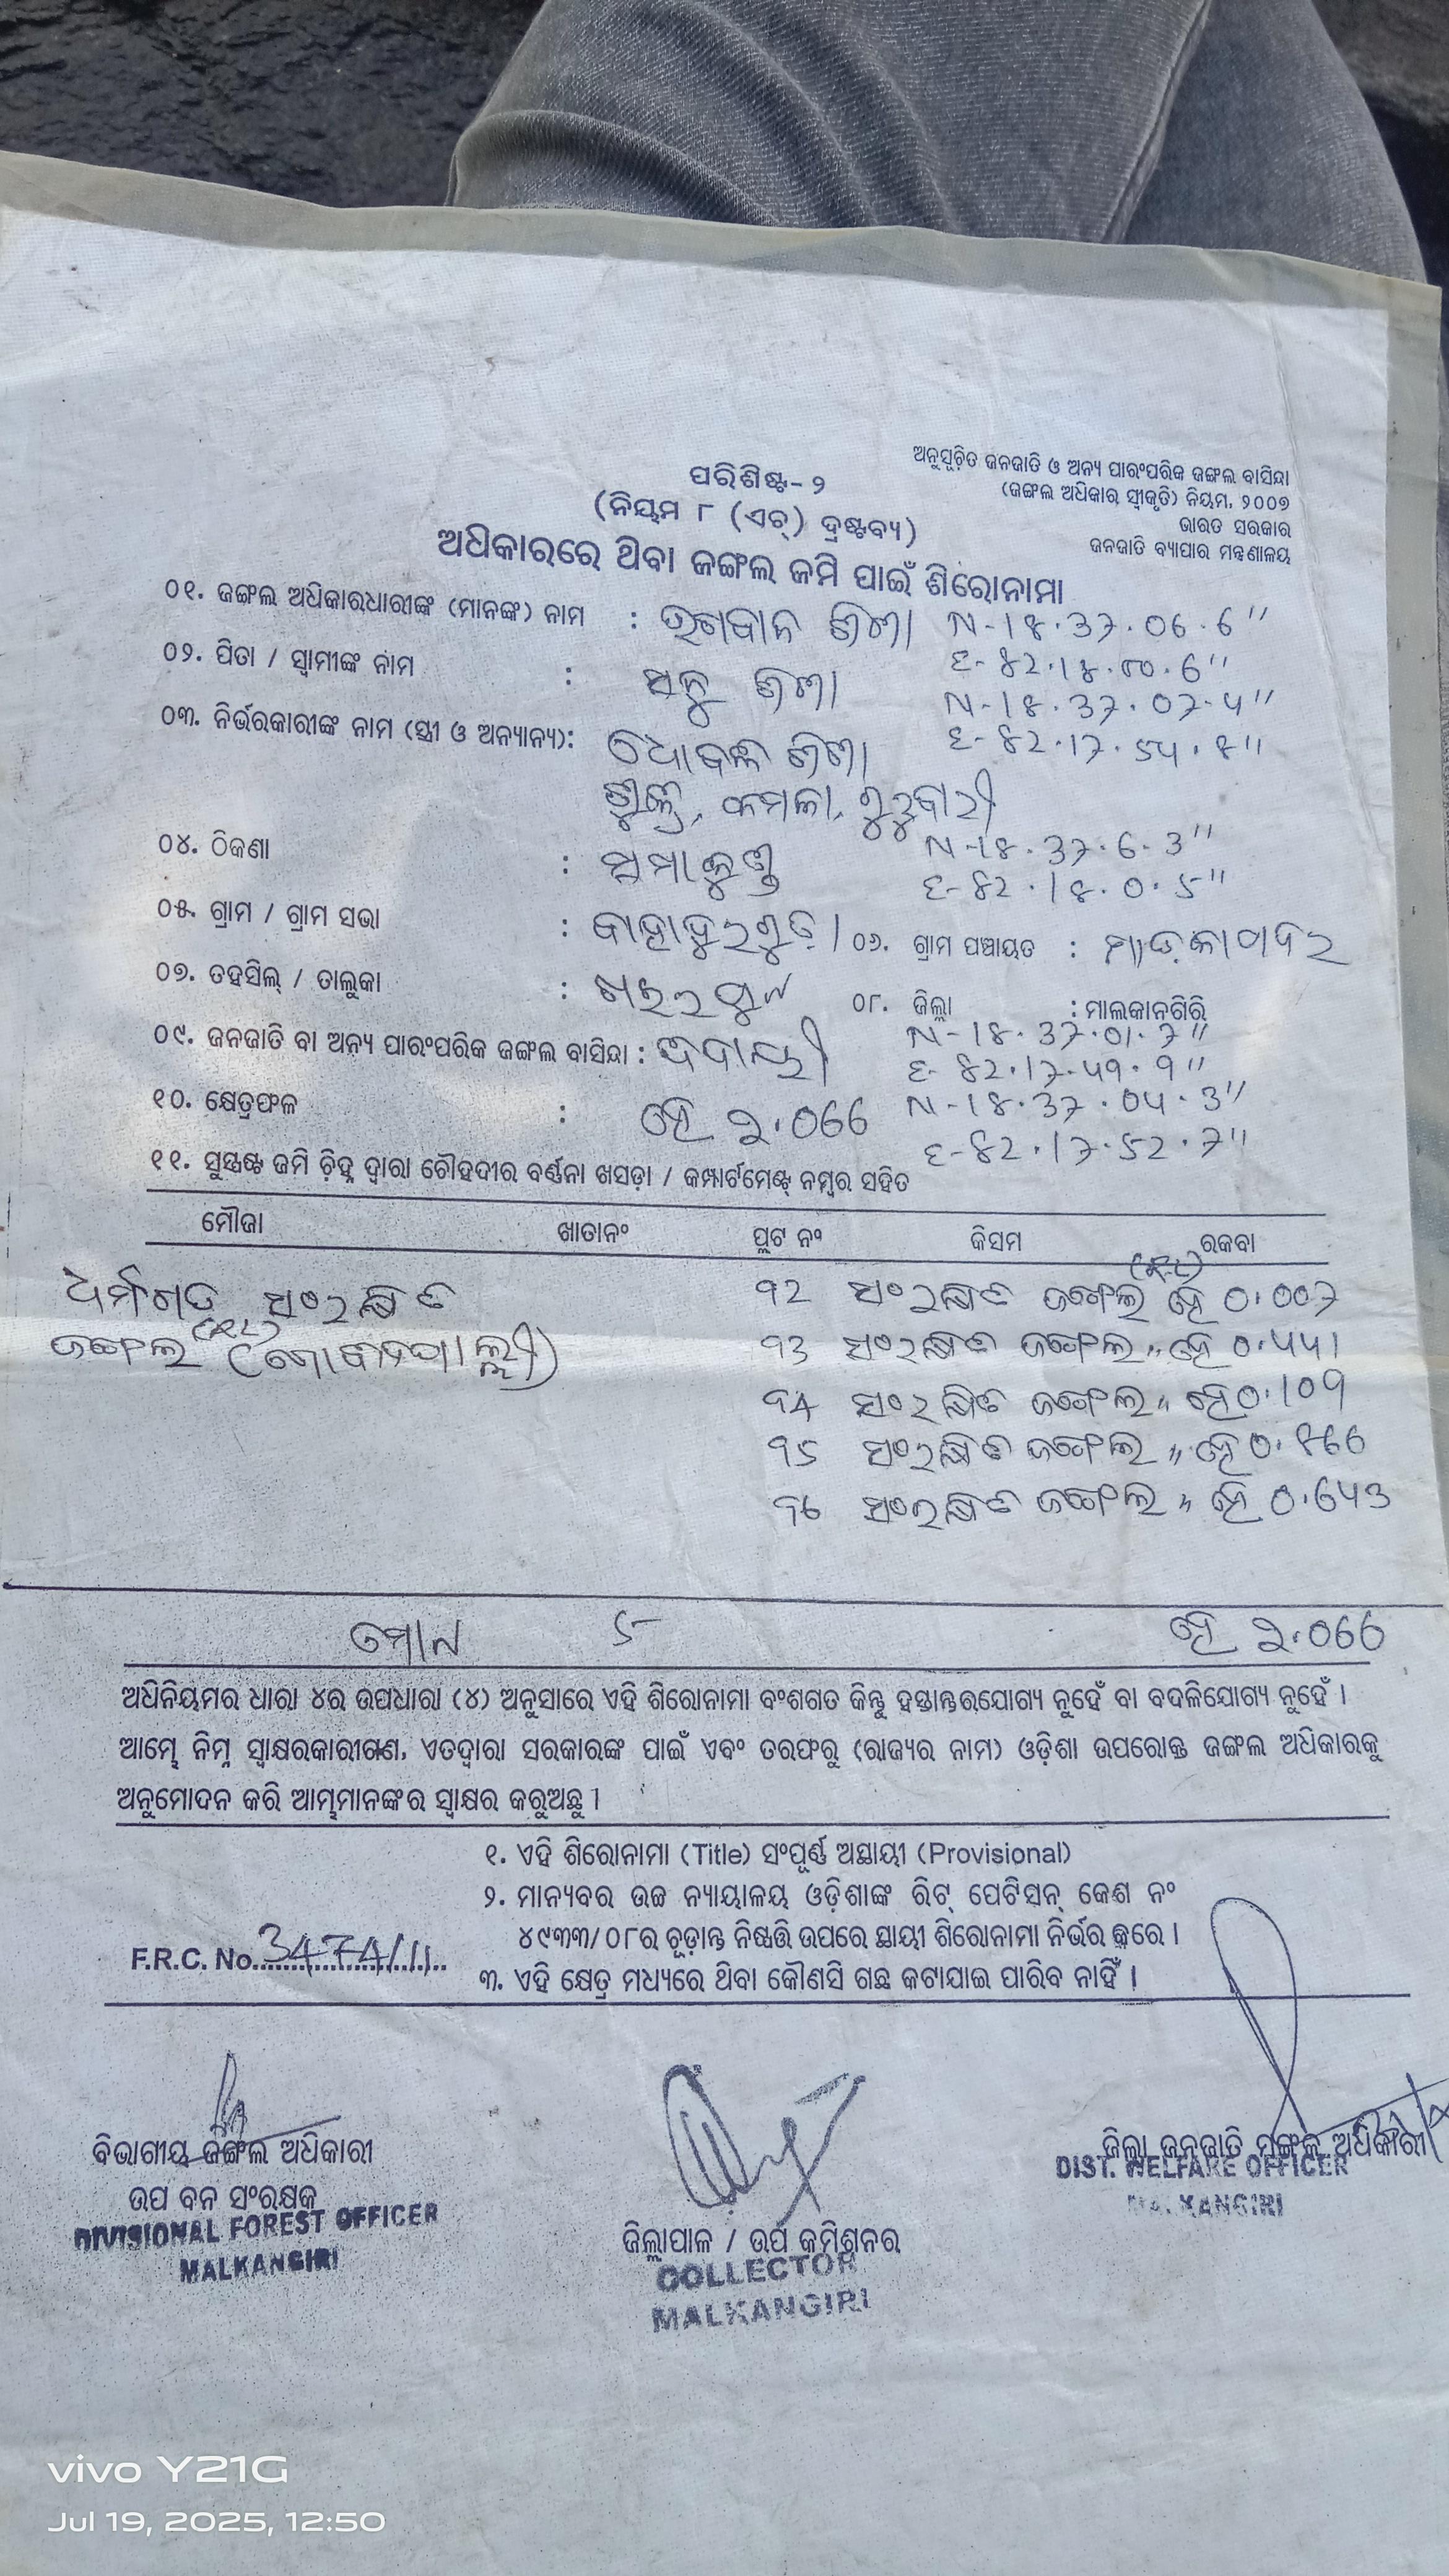 ଅନୁସୂଚିତ ଜନଜାତି ଓ ଅନ୍ୟ ପାରଂପରିକ ଜଙ୍ଗଲ ବାସିନ୍ଦା
(ଜଙ୍ଗଲ ଅଧିକାର ସ୍ୱୀକୃତି) ନିୟମ, ୨୦୦୭
ଭାରତ ସରକାର
ଜନଜାତି ବ୍ୟାପାର ମନ୍ତ୍ରଣାଳୟ
ପରିଶିଷ୍ଟ-୨
(ନିୟମ ୮ (ଏଚ୍) ଦ୍ରଷ୍ଟବ୍ୟ)
ଅଧିକାରରେ ଥିବା ଜଙ୍ଗଲ ଜମି ପାଇଁ ଶିରୋନାମା
୦୧. ଜଙ୍ଗଲ ଅଧିକାରଧାରୀଙ୍କ (ମାନଙ୍କ) ନାମ : ଭଗବାନ N-18.37.06.6"
E-82.18.00.6"
୦୨. ପିତା / ସ୍ୱାମୀଙ୍କ ନାମ :
N-18.37.07.4"
୦୩. ନିର୍ଭରକାରୀଙ୍କ ନାମ (ସ୍ତ୍ରୀ ଓ ଅନ୍ୟାନ୍ୟ):
E-82.17.54.8"
କମଳା, ଗୁରୁବାରୀ
N-18.37.6.3"
୦୪. ଠିକଣା :
E-82.18.0.5"
୦୫. ଗ୍ରାମ / ଗ୍ରାମ ସଭା : ବାହାଦୁରଗୁଡ଼ା ୦୬. ଗ୍ରାମ ପଞ୍ଚାୟତ :
୦୭. ତହସିଲ୍ / ତାଲୁକା : ୦୮. ଜିଲ୍ଲା : ମାଲକାନଗିରି
N-18.37.01.7"
୦୯. ଜନଜାତି ବା ଅନ୍ୟ ପାରଂପରିକ ଜଙ୍ଗଲ ବାସିନ୍ଦା :
E-82.17.49.9"
୧୦. କ୍ଷେତ୍ରଫଳ : ହେ ୨.066 N-18.37.04.3"
E-82.17.52.7"
୧୧. ସୁସ୍ପଷ୍ଟ ଜମି ଚିହ୍ନ ଦ୍ୱାରା ଚୌହଦୀର ବର୍ଣ୍ଣନା ଖସଡ଼ା / କମ୍ପାର୍ଟମେଣ୍ଟ୍ ନମ୍ବର ସହିତ
ମୌଜା ଖାତାନଂ ପ୍ଲଟ ନଂ କିସମ ରକବା
ଧର୍ମଗଡ଼ ସଂରକ୍ଷିତ 92 ସଂରକ୍ଷିତ ଜଙ୍ଗଲ ହେ 0.007
ଜଙ୍ଗଲ 93 ସଂରକ୍ଷିତ ଜଙ୍ଗଲ " ହେ 0.441
94 ସଂରକ୍ଷିତ ଜଙ୍ଗଲ " ହେ 0.109
95 ସଂରକ୍ଷିତ ଜଙ୍ଗଲ " ହେ 0.866
96 ସଂରକ୍ଷିତ ଜଙ୍ଗଲ " ହେ 0.643
ମୋଟ 5 ହେ ୨.066
ଅଧିନିୟମର ଧାରା ୪ର ଉପଧାରା (୪) ଅନୁସାରେ ଏହି ଶିରୋନାମା ବଂଶଗତ କିନ୍ତୁ ହସ୍ତାନ୍ତରଯୋଗ୍ୟ ନୁହେଁ ବା ବଦଳିଯୋଗ୍ୟ ନୁହେଁ ।
ଆମ୍ଭେ ନିମ୍ନ ସ୍ୱାକ୍ଷରକାରୀଗଣ, ଏତଦ୍ୱାରା ସରକାରଙ୍କ ପାଇଁ ଏବଂ ତରଫରୁ (ରାଜ୍ୟର ନାମ) ଓଡ଼ିଶା ଉପରୋକ୍ତ ଜଙ୍ଗଲ ଅଧିକାରକୁ
ଅନୁମୋଦନ କରି ଆମ୍ଭମାନଙ୍କର ସ୍ୱାକ୍ଷର କରୁଅଛୁ ।
୧. ଏହି ଶିରୋନାମା (Title) ସଂପୂର୍ଣ୍ଣ ଅସ୍ଥାୟୀ (Provisional)
୨. ମାନ୍ୟବର ଉଚ୍ଚ ନ୍ୟାୟାଳୟ ଓଡ଼ିଶାଙ୍କ ରିଟ୍ ପେଟିସନ୍ କେଶ ନଂ
୪୯୩୩/୦୮ର ଚୂଡ଼ାନ୍ତ ନିଷ୍ପତ୍ତି ଉପରେ ସ୍ଥାୟୀ ଶିରୋନାମା ନିର୍ଭର କରେ ।
F.R.C. No. 3474/11
୩. ଏହି କ୍ଷେତ୍ର ମଧ୍ୟରେ ଥିବା କୌଣସି ଗଛ କଟାଯାଇ ପାରିବ ନାହିଁ ।
ବିଭାଗୀୟ ଜଙ୍ଗଲ ଅଧିକାରୀ
ଉପ ବନ ସଂରକ୍ଷକ
DIVISIONAL FOREST OFFICER
MALKANGIRI
ଜିଲ୍ଲାପାଳ / ଉପ କମିଶନର
COLLECTOR
MALKANGIRI
ଜିଲ୍ଲା ଜନଜାତି ମଙ୍ଗଳ ଅଧିକାରୀ
DIST. WELFARE OFFICER
MALKANGIRI
vivo Y21G
Jul 19, 2025, 12:50